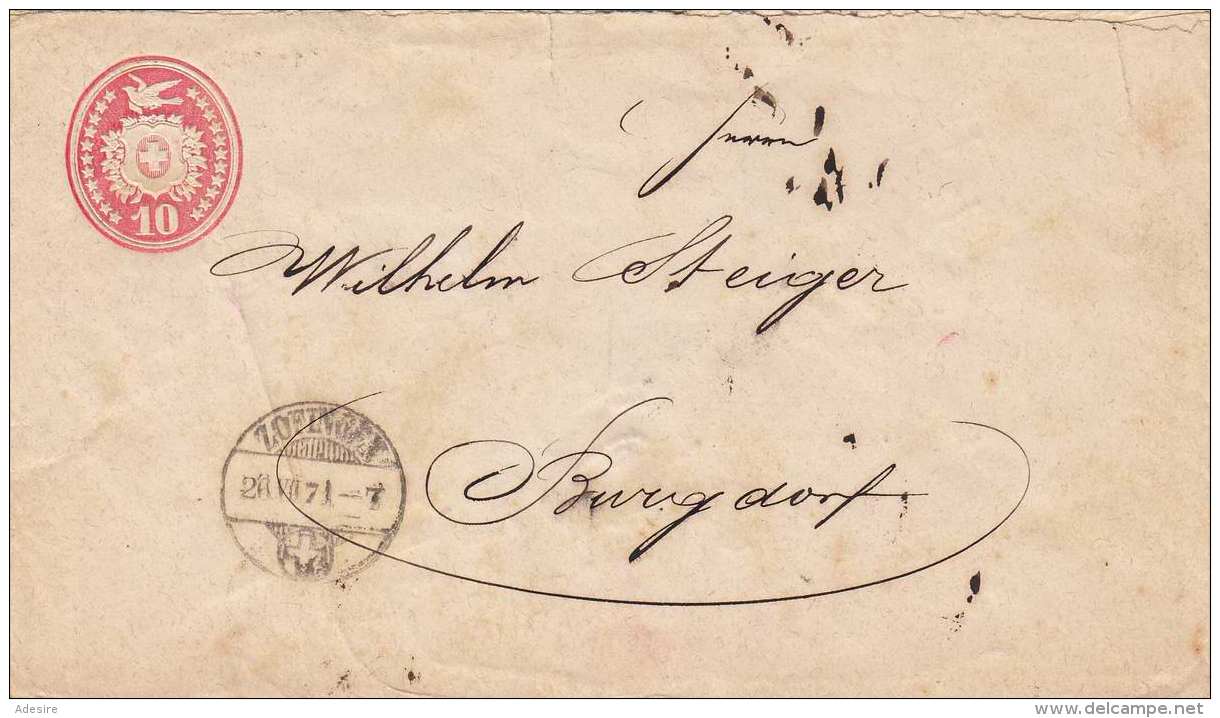 10
Herrn
Wilhelm Steiger
Burgdorf
ZOFINGEN
71-7
Adesire
delcampe.net